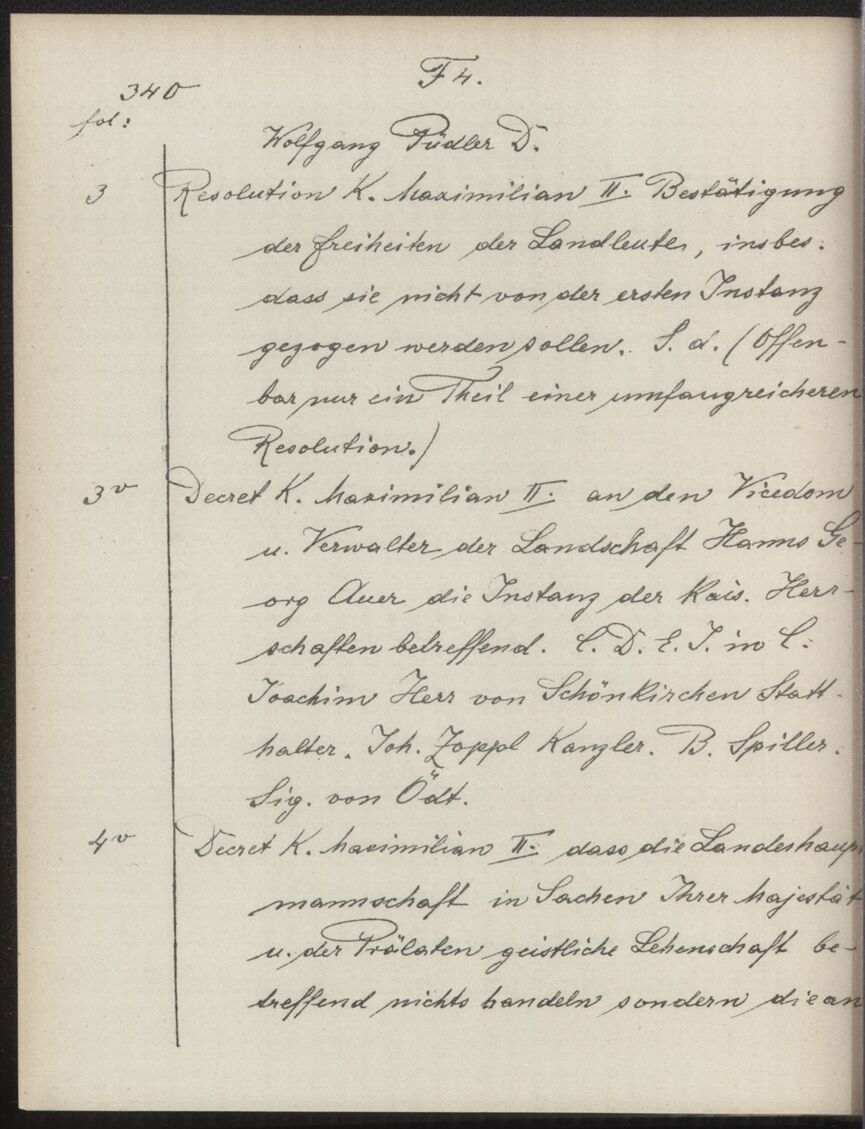 340
F 4.
fol:
Wolfgang Püdler D.
3 Resolution K. Maximilian II. Bestätigung
der Freiheiten der Landleute, insbes.
dass sie nicht von der ersten Instanz
gezogen werden sollen. S. d. (Offen-
bar nur ein Theil einer umfangreicheren
Resolution.)
3v Decret K. Maximilian II. an den Vicedom
u. Verwalter der Landschaft Hanns Ge-
org Auer die Instanz der Kais. Herr-
schaften betreffend. C. D. E. I. in C.
Joachim Herr von Schönkirchen Statt-
halter. Joh. Zoppl Kanzler. B. Spiller.
Sig. von Ödt.
4v Decret K. Maximilian II. dass die Landeshaupt
mannschaft in Sachen Ihrer Majestät
u. der Prälaten geistliche Lehenschaft be-
treffend nichts handeln sondern die an